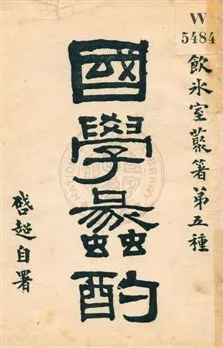 W
5484
飲冰室叢著第五種
國學蠡酌
啓超自署